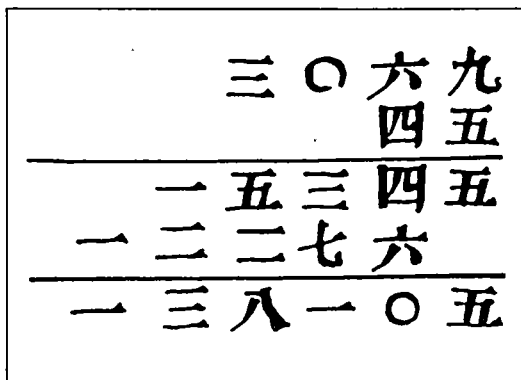 三〇六九
四五
一五三四五
一二二七六
一三八一〇五